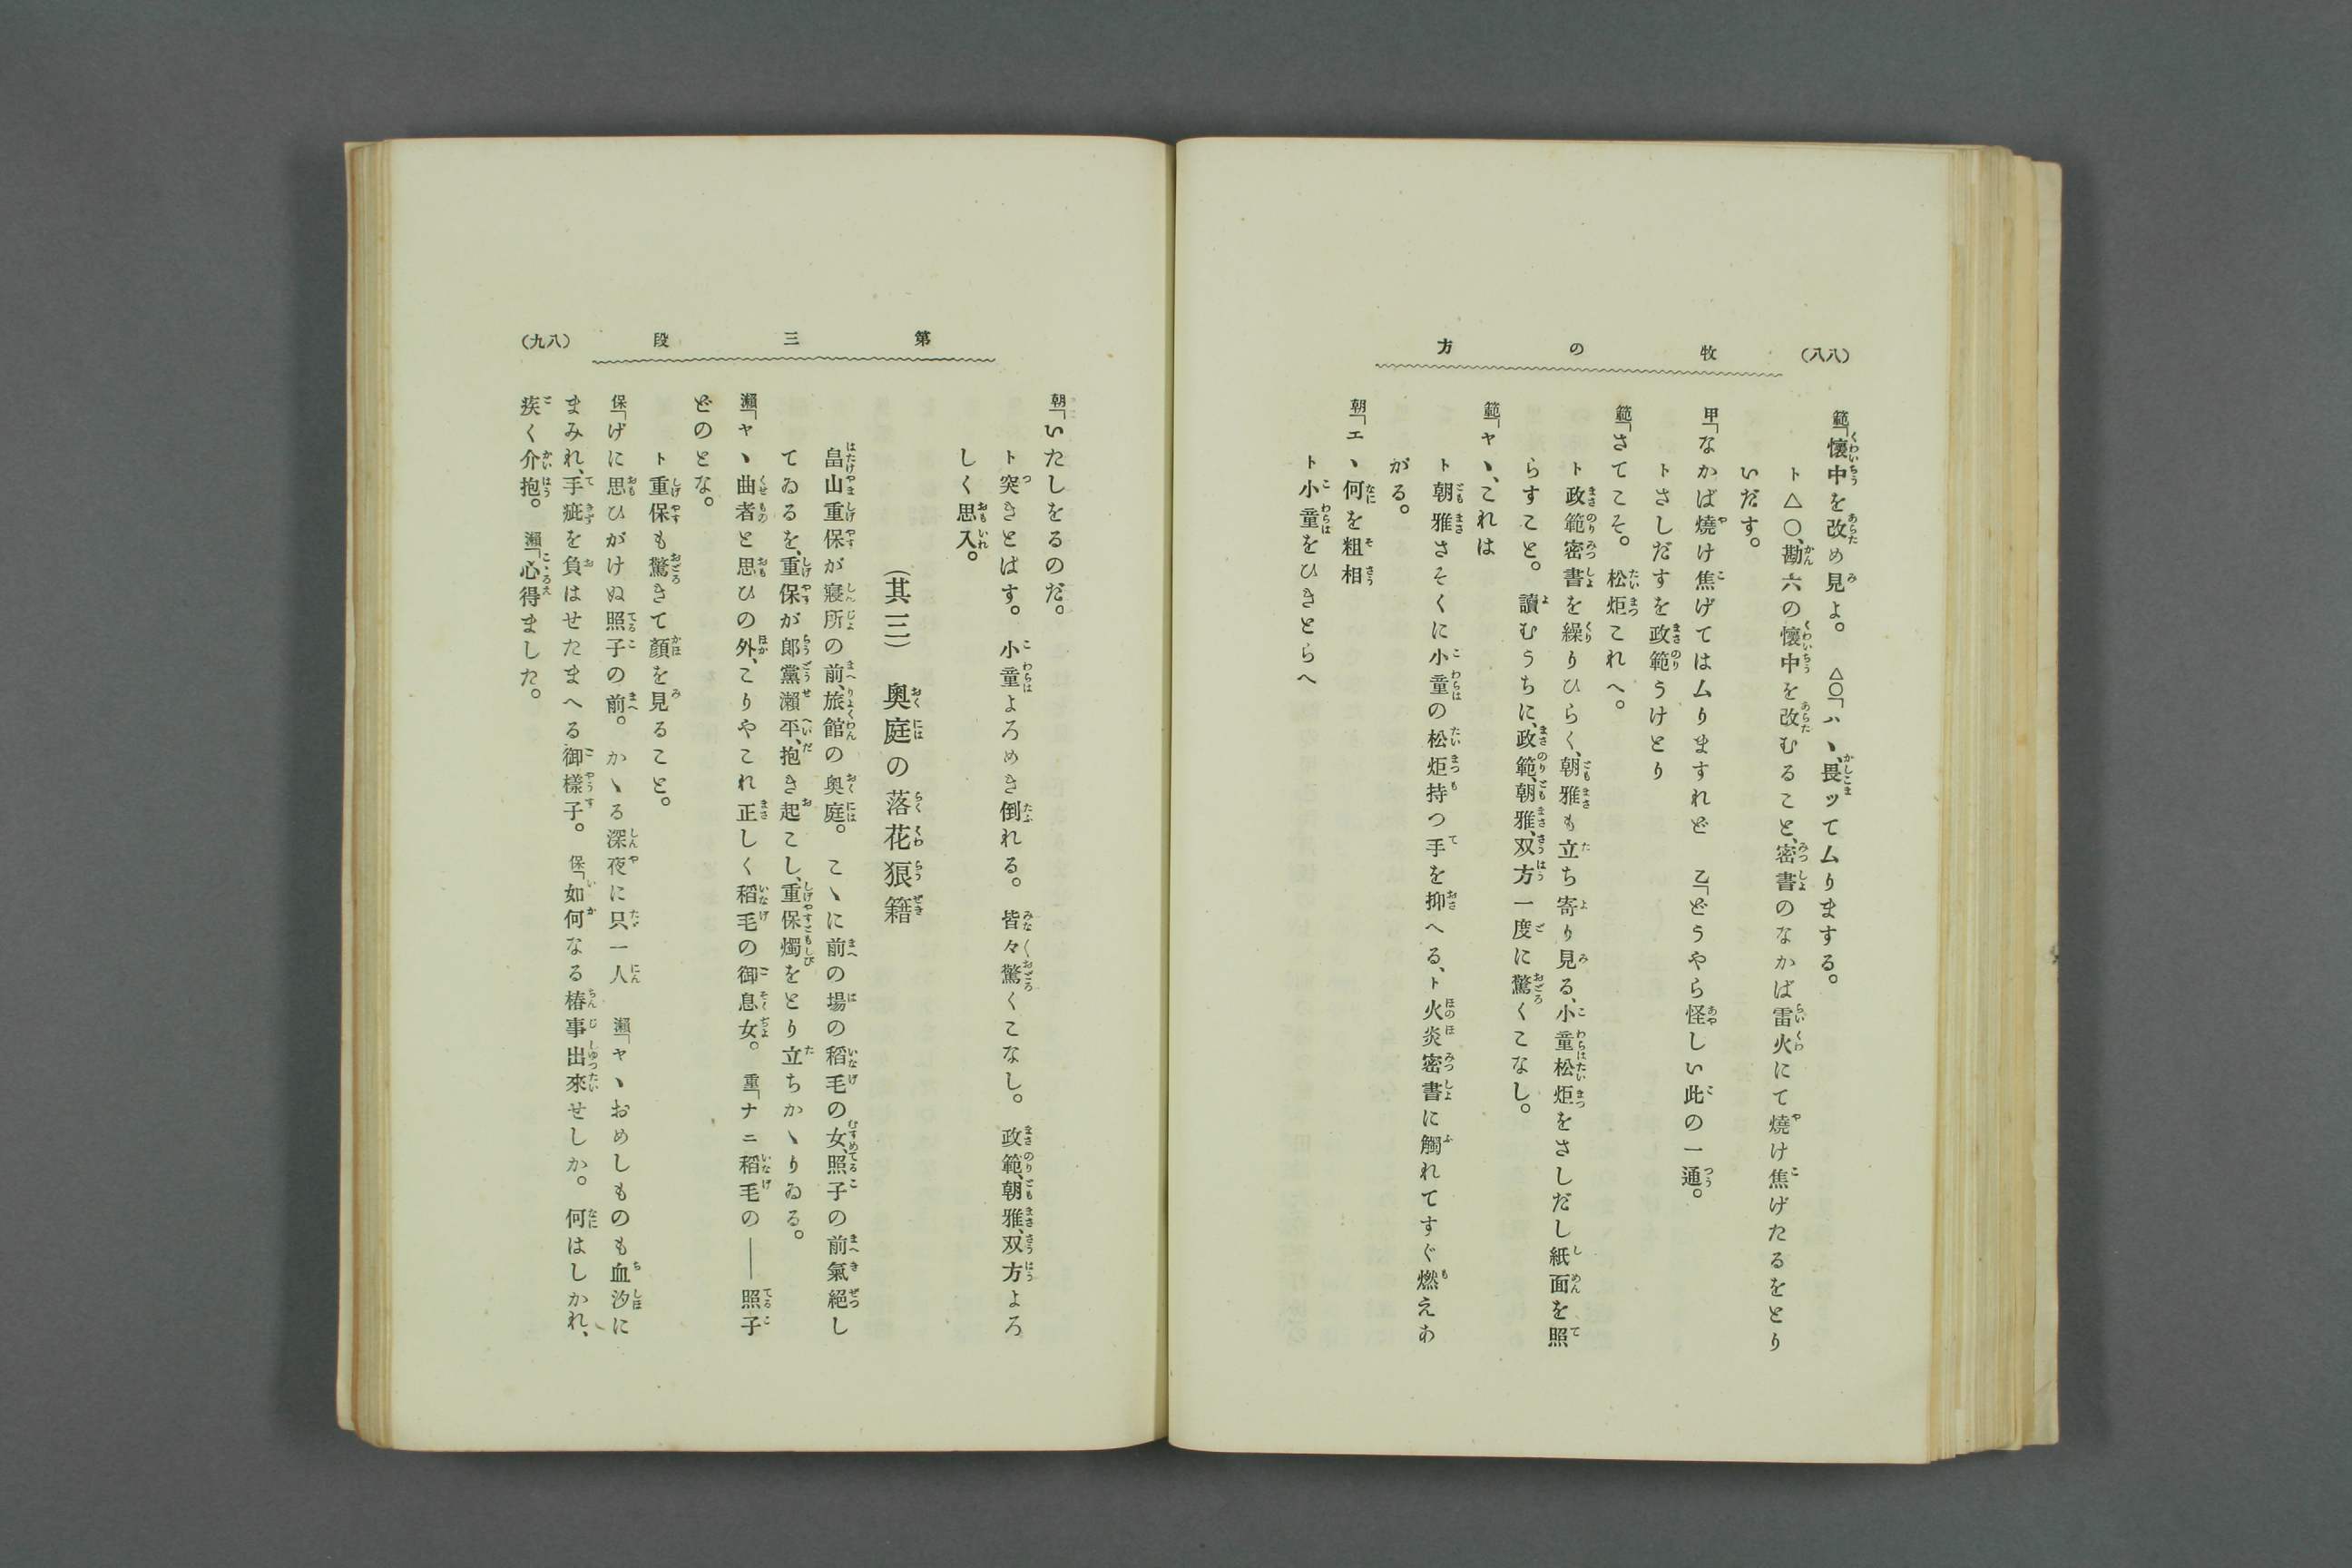 （八八）
牧の方
範「懷中を改め見よ。　△〇「ハヽ、畏ッてムりまする。
ト△〇、勘六の懷中を改むること、密書のなかば雷火にて燒け焦げたるをとり
いだす。
甲「なかば燒け焦げてはムりますれど　乙「どうやら怪しい此の一通。
トさしだすを政範うけとり
範「さてこそ。　松炬これへ。
ト政範密書を繰りひらく、朝雅も立ち寄り見る、小童松炬をさしだし紙面を照
らすこと。　讀むうちに、政範、朝雅、双方一度に驚くこなし。
範「ヤヽ、これは
ト朝雅さそくに小童の松炬持つ手を抑へる、ト火炎密書に觸れてすぐ燃えあ
がる。
朝「エヽ何を粗相
ト小童をひきとらへ
第三段
（八九）
朝「いたしをるのだ。
ト突きとばす。　小童よろめき倒れる。　皆々驚くこなし。　政範、朝雅、双方よろ
しく思入。
（其三）　奥庭の落花狼籍
畠山重保が寢所の前、旅館の奥庭。　こヽに前の場の稻毛の女、照子の前氣絕し
てゐるを、重保が郎黨瀨平、抱き起こし、重保燭をとり立ちかヽりゐる。
瀨「ヤヽ曲者と思ひの外、こりやこれ正しく稻毛の御息女。　重「ナニ稻毛の――照子
どのとな。
ト重保も驚きて顏を見ること。
保「げに思ひがけぬ照子の前。　かヽる深夜に只一人　瀨「ヤヽおめしものも血汐に
まみれ、手疵を負はせたまへる御樣子。　保「如何なる椿事出來せしか。　何はしかれ、
疾く介抱。　瀨「心得ました。